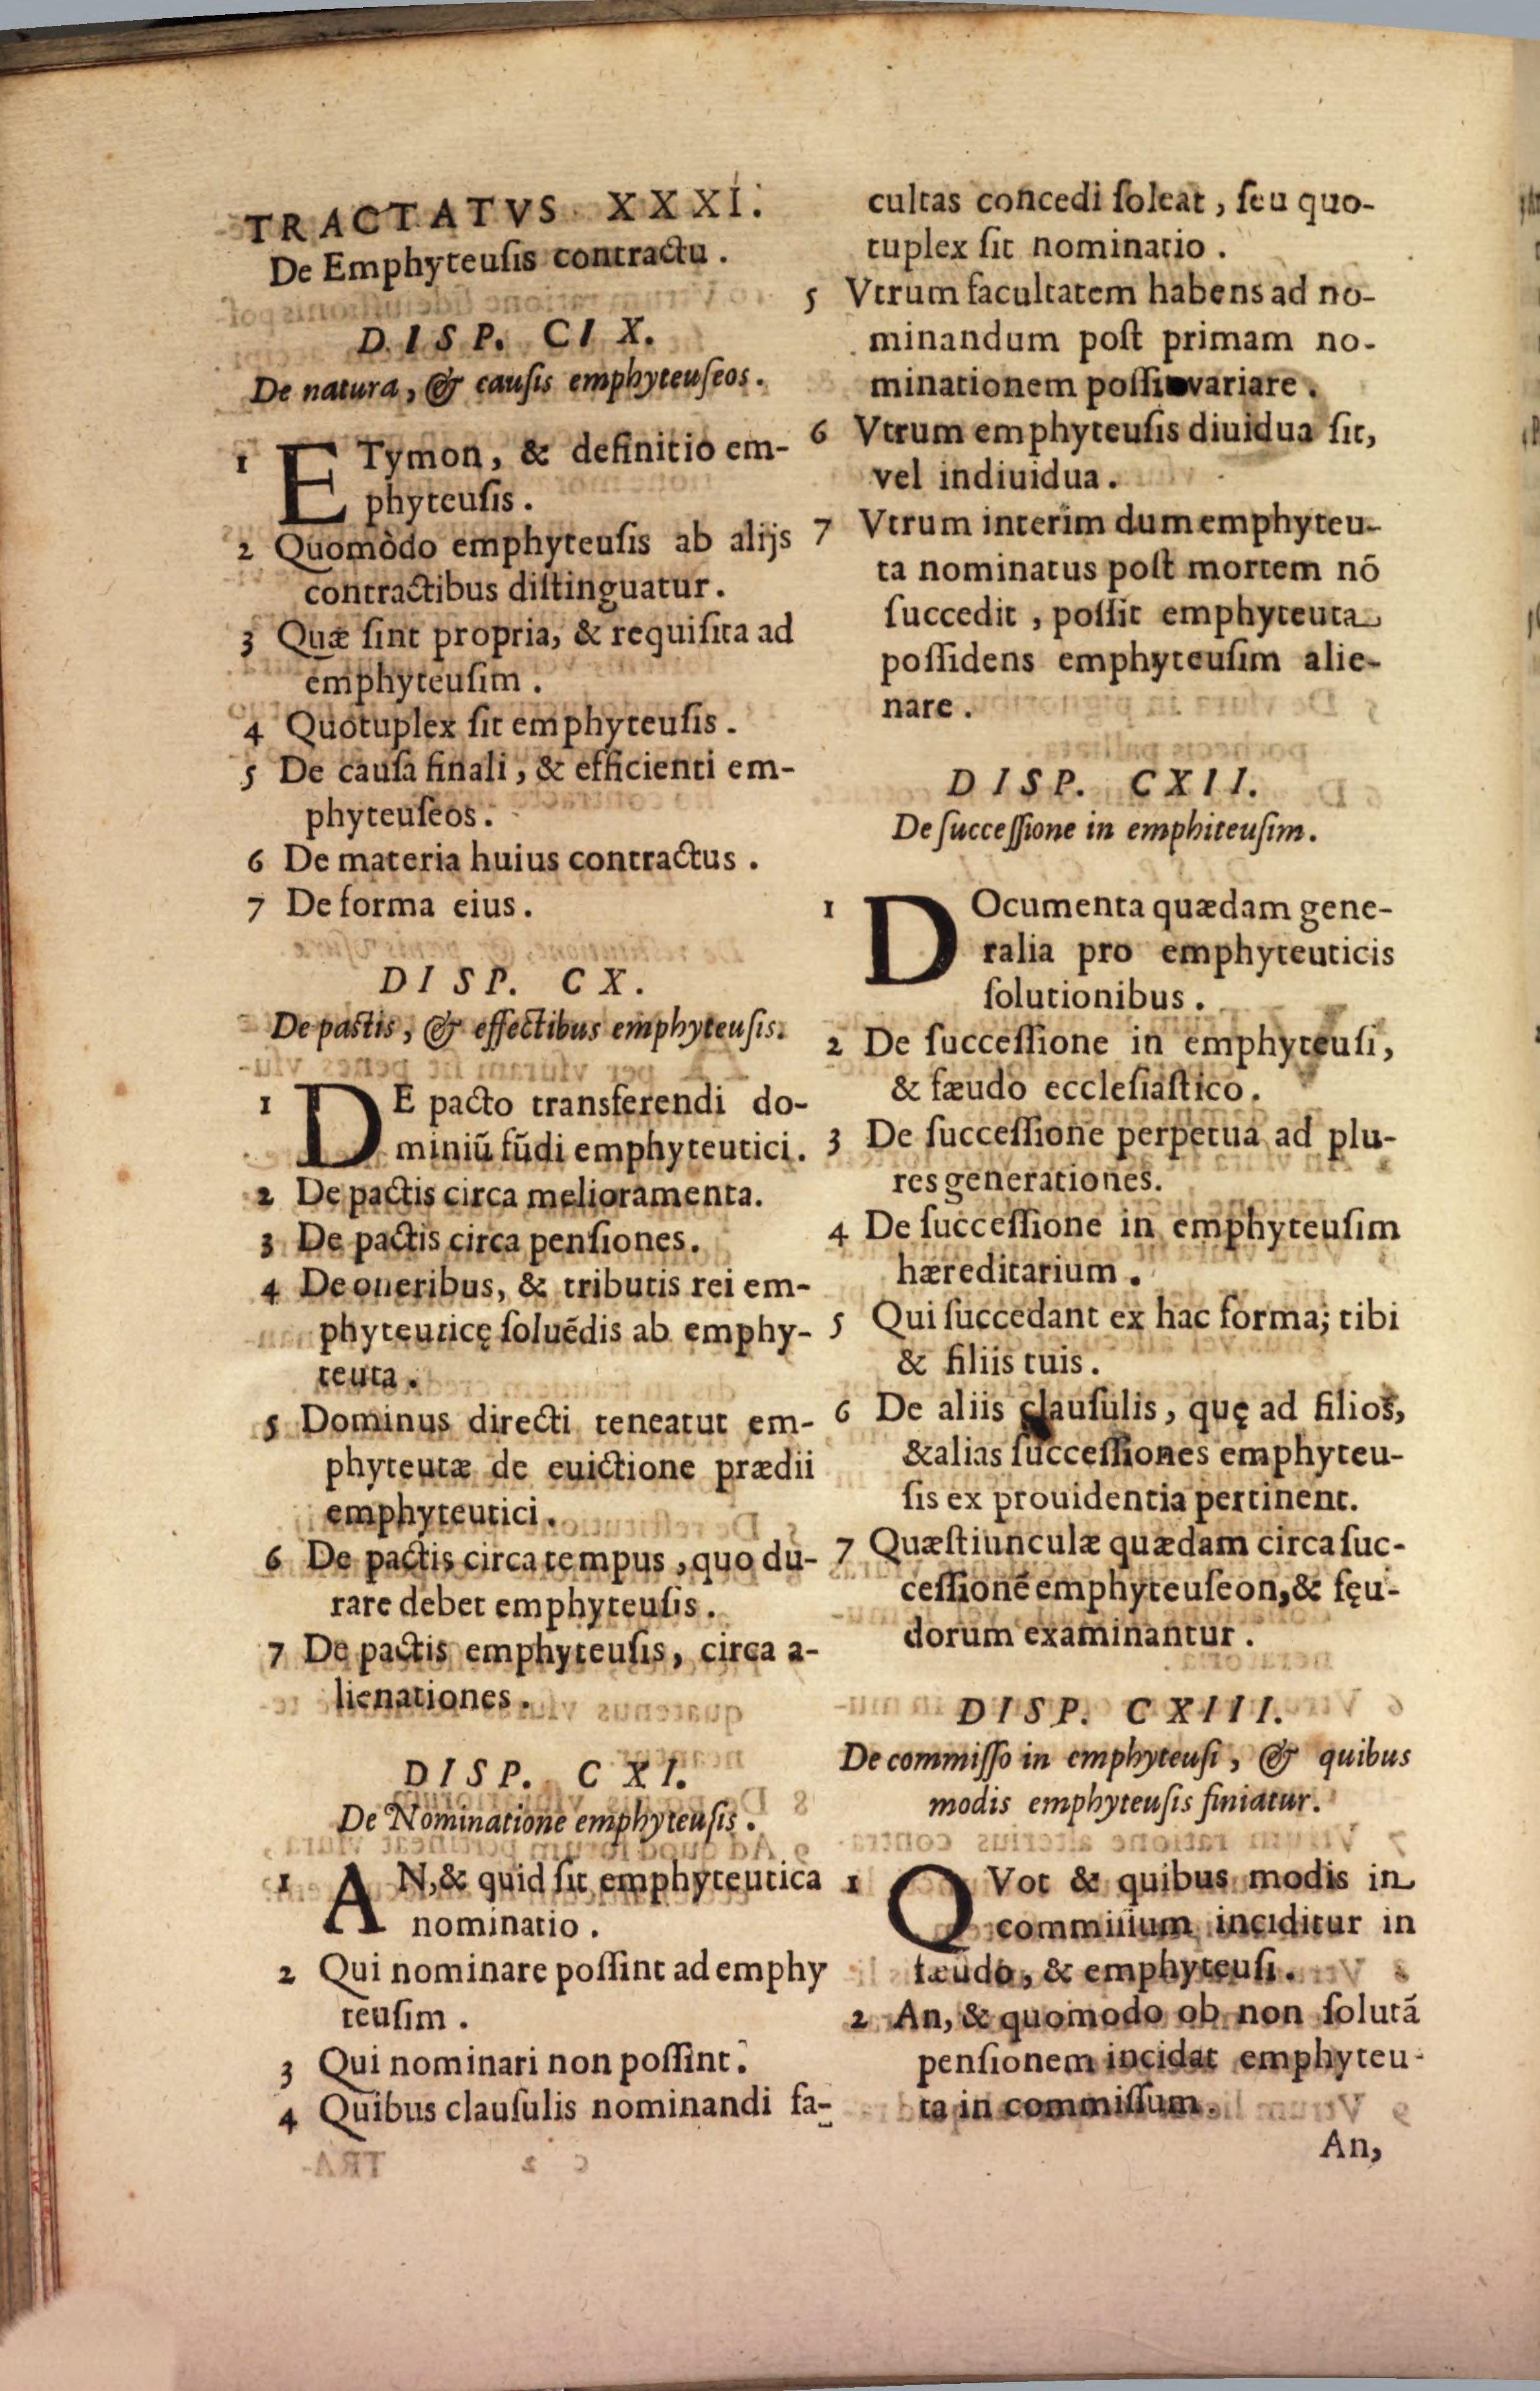 TRACTATVS XXXI.
De Emphyteuſis contractu.
DISP. CIX.
De natura, & cauſis emphyteuſeos.
1 ETymon, & definitio em-
phyteuſis.
2 Quomòdo emphyteuſis ab alijs
contractibus diſtinguatur.
3 Quæ ſint propria, & requiſita ad
emphyteuſim.
4 Quotuplex ſit emphyteuſis.
5 De cauſa finali, & efficienti em-
phyteuſeos.
6 De materia huius contractus.
7 De forma eius.
DISP. CX.
De pactis, & effectibus emphyteuſis.
1 DE pacto transferendi do-
miniũ fũdi emphyteutici.
2 De pactis circa melioramenta.
3 De pactis circa penſiones.
4 De oneribus, & tributis rei em-
phyteuticę ſoluẽdis ab emphy-
teuta.
5 Dominus directi teneatut em-
phyteutæ de euictione prædii
emphyteutici.
6 De pactis circa tempus, quo du-
rare debet emphyteuſis.
7 De pactis emphyteuſis, circa a-
lienationes.
DISP. CXI.
De Nominatione emphyteuſis.
1 AN, & quid ſit emphyteutica
nominatio.
2 Qui nominare poſſint ad emphy
teuſim.
3 Qui nominari non poſſint.
4 Quibus clauſulis nominandi fa-
cultas concedi ſoleat, ſeu quo-
tuplex ſit nominatio.
5 Vtrum facultatem habens ad no-
minandum poſt primam no-
minationem poſſit variare.
6 Vtrum emphyteuſis diuidua ſit,
vel indiuidua.
7 Vtrum interim dum emphyteu-
ta nominatus poſt mortem nõ
ſuccedit, poſſit emphyteuta
poſſidens emphyteuſim alie-
nare.
DISP. CXII.
De ſucceſſione in emphiteuſim.
1 DOcumenta quædam gene-
ralia pro emphyteuticis
ſolutionibus.
2 De ſucceſſione in emphyteuſi,
& fæudo eccleſiaſtico.
3 De ſucceſſione perpetua ad plu-
res generationes.
4 De ſucceſſione in emphyteuſim
hæreditarium.
5 Qui ſuccedant ex hac forma; tibi
& filiis tuis.
6 De aliis clauſulis, quę ad filios,
& alias ſucceſſiones emphyteu-
ſis ex prouidentia pertinent.
7 Quæſtiunculæ quædam circa ſuc-
ceſſionẽ emphyteuſeon, & fęu-
dorum examinantur.
DISP. CXIII.
De commiſſo in emphyteuſi, & quibus
modis emphyteuſis finiatur.
1 QVot & quibus modis in
commiſſum inciditur in
fæudo, & emphyteuſi.
2 An, & quomodo ob non ſolutã
penſionem incidat emphyteu-
ta in commiſſum.
An,